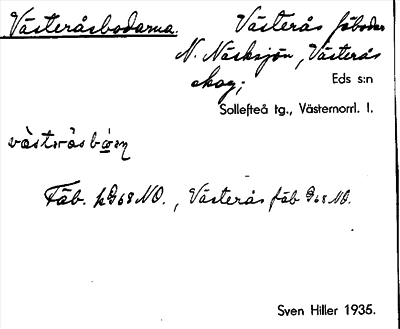 Västeråsbodarna. Västerås fäbodar
N. Näsksjön, Västerås
skog; Eds s:n
Sollefteå tg., Västernorrl. l.
Fäb. på 68 NO., Västerås fäb på 68 NO.
Sven Hiller 1935.